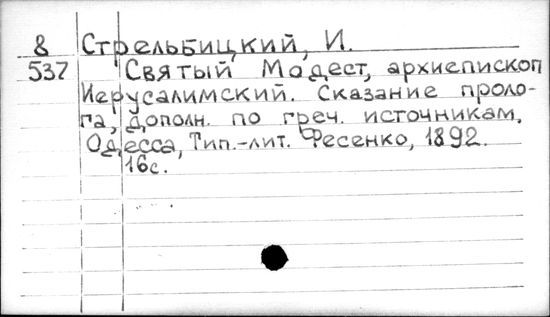 8 Стрельбицкий, И.
537 Святый Модест, архиепископ
Иерусалимский. Сказание проло-
га, дополн. по греч. источникам.
Одесса, Тип.-лит. Фесенко, 1892.
16с.